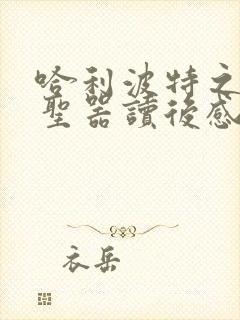 哈利波特之
聖器讀後感
衣岳